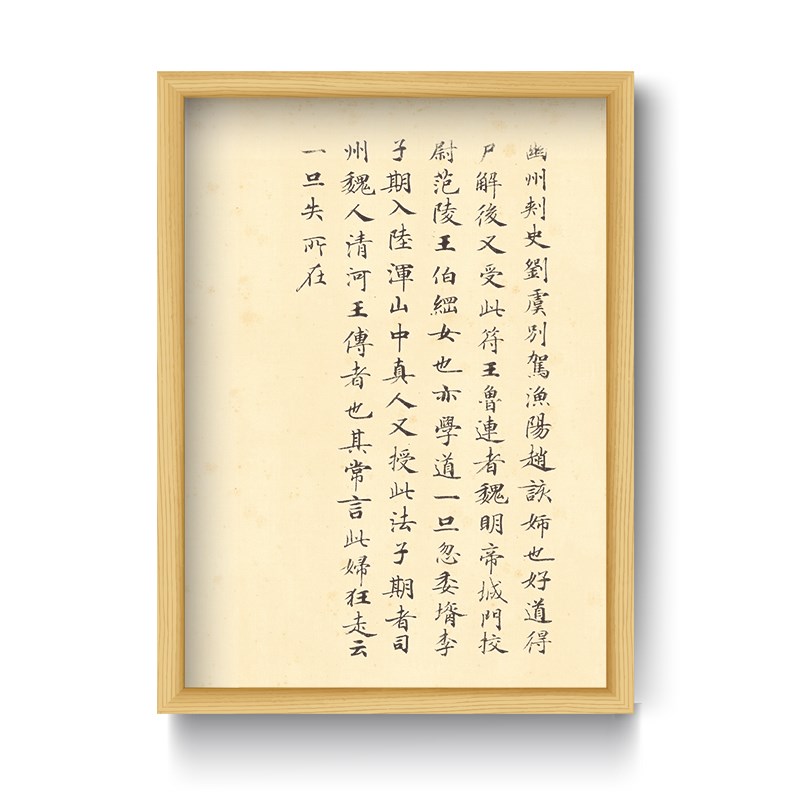 幽州刾史劉虞別駕漁陽趙該姉也好道得
尸解後又受此符王魯連者魏明帝城門挍
尉范陵王伯綱女也亦學道一旦忽委壻李
子期入陸渾山中真人又授此法子期者司
州魏人清河王傳者也其常言此婦狂走云
一旦失所在